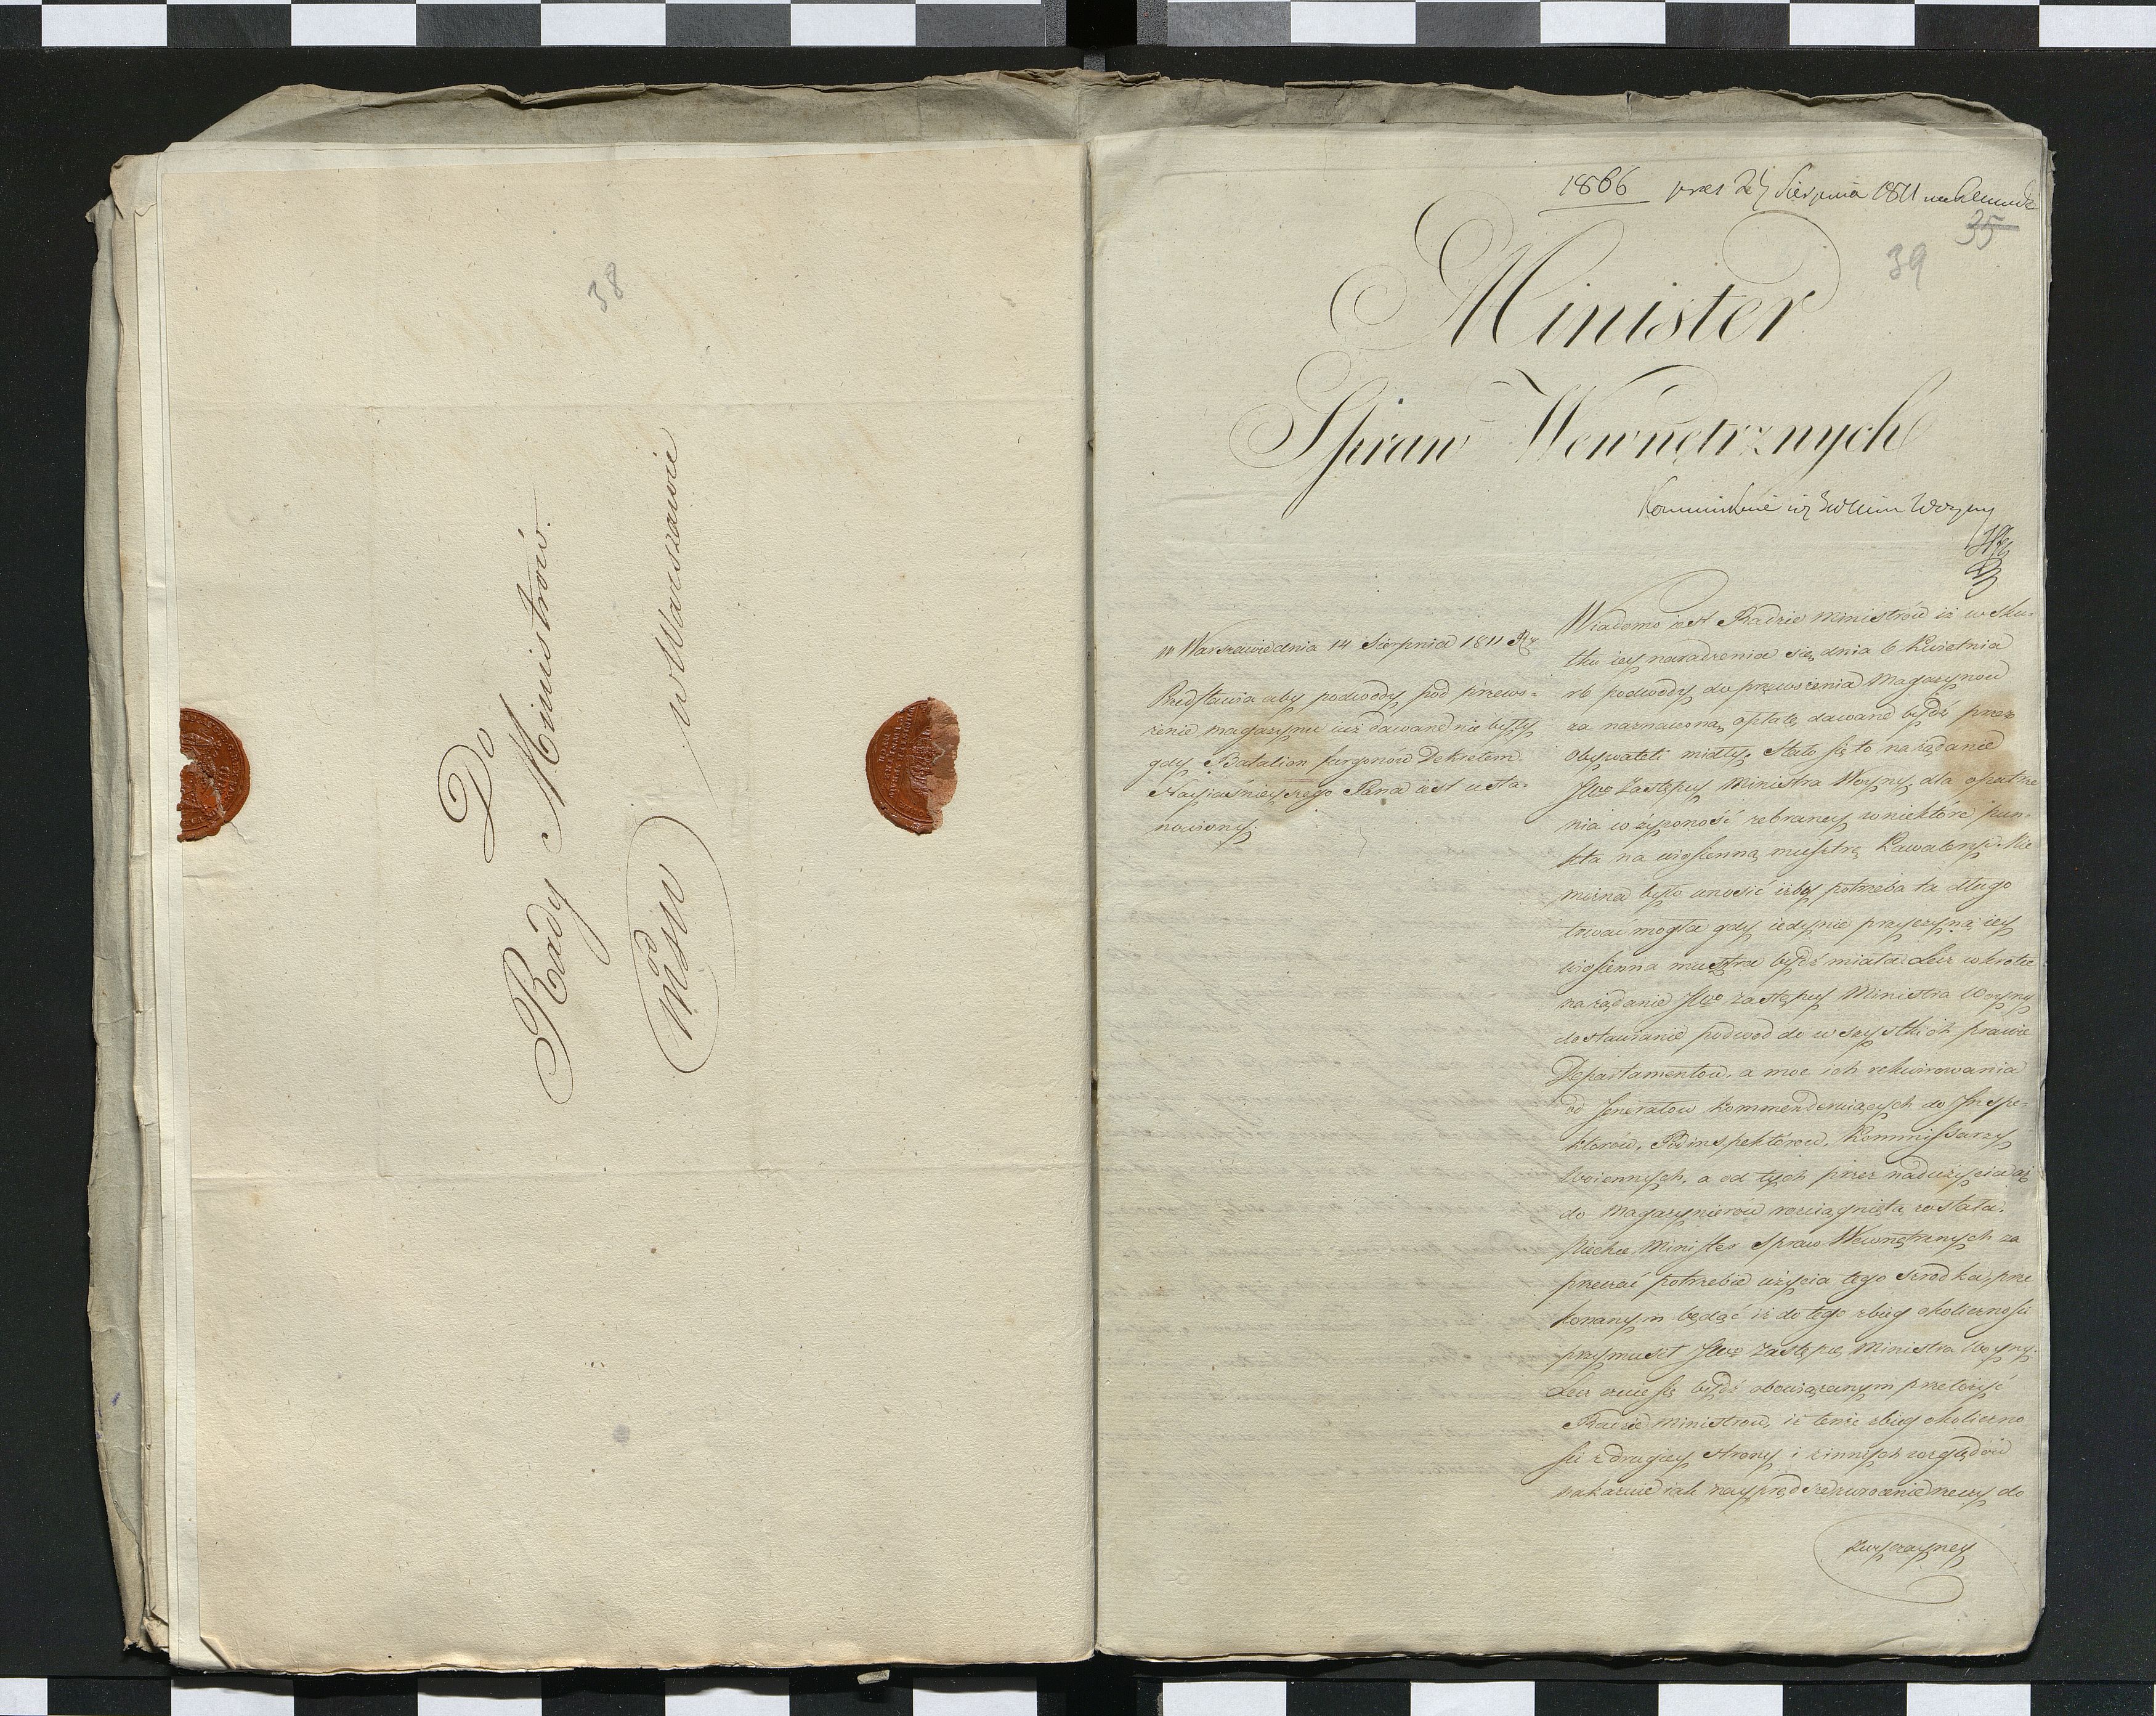 38
Do
Rady Ministrów
w Warszawie
od
MSW
1866 prez 27 Sierpnia 1811
35
39
Minister
Spraw Wewnętrznych
w Warszawie dnia 14 Sierpnia 1811 R
Przedstawia aby podwody pod przewo-
żenie magazynu iuż dawane nie były
gdy Batalion furgonów Dekretem
Nayiaśnieyszego Pana iest usta-
nowiony
Wiadomo iest Radzie Ministrów iż w sku-
tku iey naradzenia się dnia 6 Kwietnia
rb podwody do przewożenia Magazynow
za naznaczoną opłatę dawane bydź przez
Obywateli miały. Stało się to na żądanie
JWo Zastępcy Ministra Woyny, dla opatrze
nia w żywność zebraney w niektóre pun-
kta na wiosienną musztrę Kawaleryi. Nie
można było wnosić iżby potrzeba ta długo
trwać mogła gdy iedynie przyczyną iey
wiosienna musztra bydź miała. Lecz wkrotce
na żądanie JWo Zastępcy Ministra Woyny
dostawianie podwod do wszystkich prawie
Departamentow, a moc ich rekwirowania
od Jenerałow kommenderuiących do Inspe-
ktorów, Podinspektorow, Kommissarzy
Woiennych, a od tych przez nadużycia aż
do Magazynierów rozciągnięta została.
Niechce Minister Spraw Wewnętrznych za
przeczać potrzebie użycia tego srodka, prze
konanym będąc iż do tego zbieg okoliczności
przymusił JWo Zastępcę Ministra Woyny.
Lecz czuie się bydź obowiązanym przełożyć
Radzie Ministrow, iż tenże zbieg okoliczno
ści z drugiey strony i z innych względów
nakazuie iak nayprędsze zwrocenie rzeczy do
zwyczayney